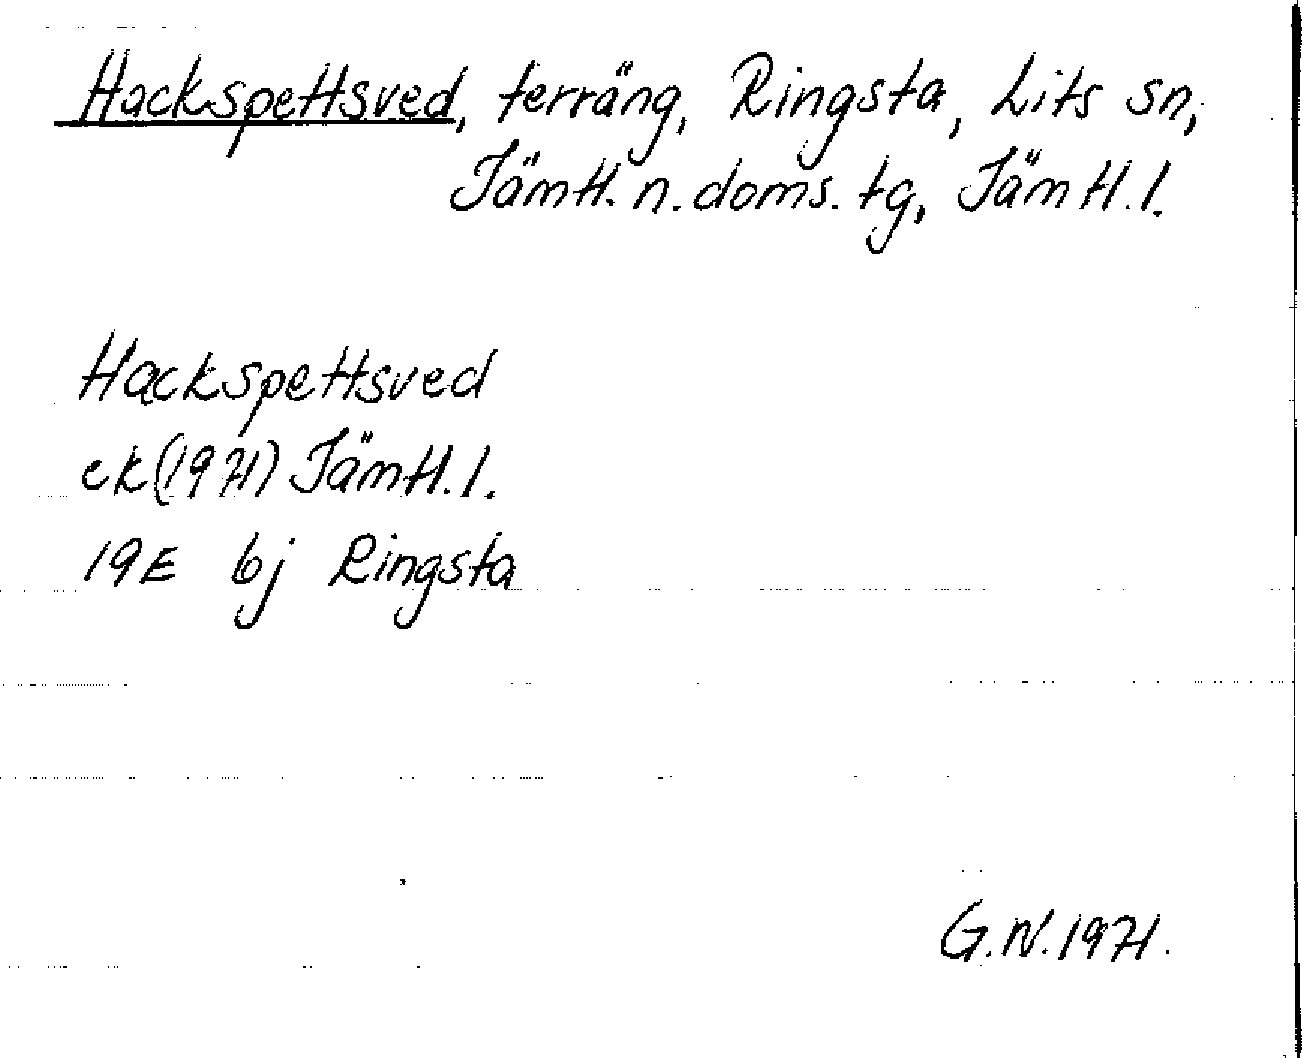 Hackspettsved, terräng, Ringsta, Lits sn,
Jämtl. n. doms. tg, Jämtl. l.
Hackspettsved
ek (1971) Jämtl. l.
19E 6j Ringsta
G.N. 1971.